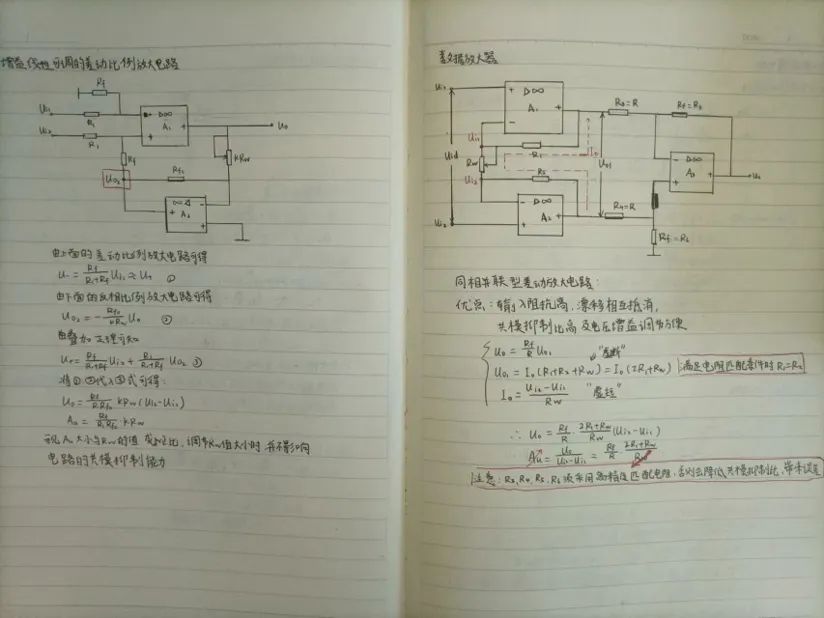 增益线性可调的差动比例放大电路
Rf
Ui1
R1
▷∞
A1
Uo
Ui2
R1
Rf
Rf2
kRw
UO2
▷∞
A2
由上面的差动比例放大电路可得
U- = Rf/(R1+Rf) Ui1 ≈ U+ ①
由下面的反相比例放大电路可得
UO2 = - Rf2/(kRw) Uo ②
由叠加定理可知
U+ = Rf/(R1+Rf) Ui2 + R1/(R1+Rf) UO2 ③
将①②代入③式可得:
Uo = Rf/(R1Rf2) kRw (Ui2-Ui1)
Au = Rf/(R1Rf2) kRw
可见Au大小与Rw的值成正比,调节Rw值大小时并不影响
电路的共模抑制能力
数据放大器
Ui1
▷∞
A1
R3=R
Rf=R5
Ui1
R1
Io
Uid
Rw
Uo1
▷∞
A3
Uo
Ui2
R2
▷∞
A2
Ui2
R4=R
Rf=R6
同相并联型差动放大电路:
优点:输入阻抗高,漂移相互抵消,
共模抑制比高及电压增益调节方便
Uo = Rf/R Uo1 "虚断"
Uo1 = Io(R1+R2+Rw) = Io(2R1+Rw) 满足电阻匹配条件时 R1=R2
Io = (Ui2-Ui1)/Rw "虚短"
∴ Uo = Rf/R · (2R1+Rw)/Rw (Ui2-Ui1)
Au = Uo/(Ui2-Ui1) = Rf/R · (2R1+Rw)/Rw
注意:R3,R4,R5,R6须采用高精度匹配电阻,否则会降低共模抑制比,带来误差